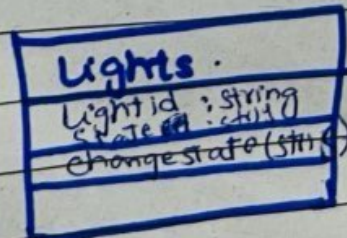 Lights.
Light id : string
State : string
changestate(string)